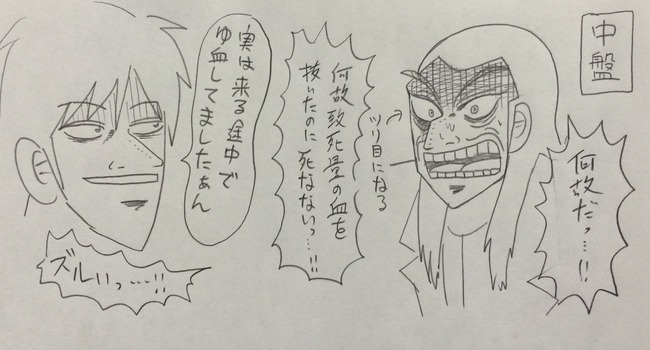 中盤
何故だっ…!!
ツリ目になる
何故致死量の血を
抜いたのに死なないっ…!!
実は来る途中で
ゆ血してましたぁん
ズルいっ…!!